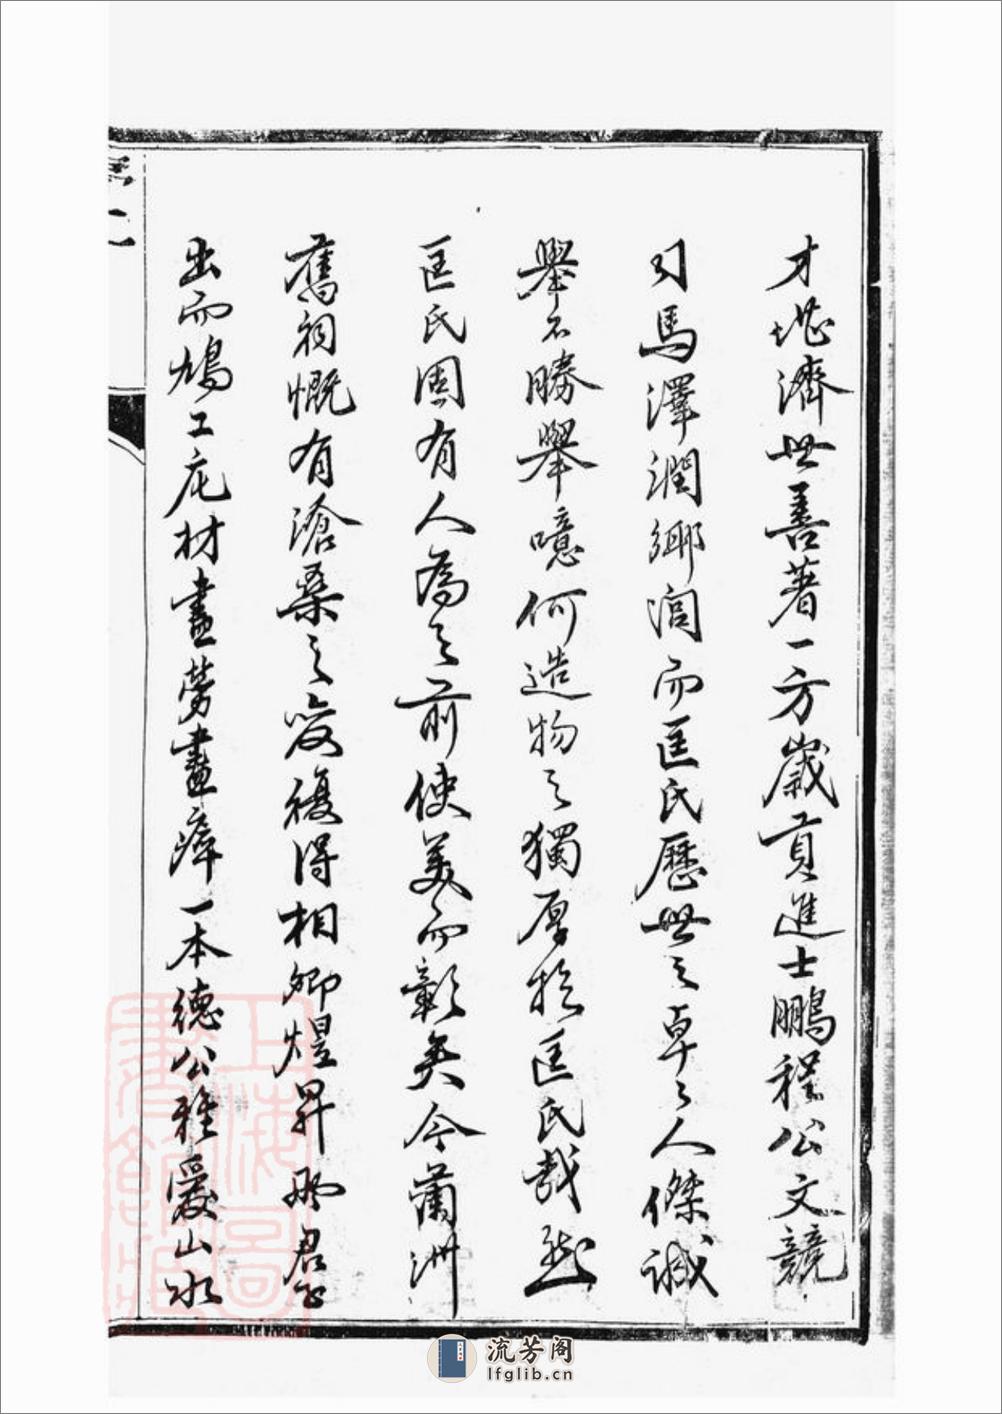 才堪濟世善著一方歲貢進士鵬程公文競
司馬澤潤鄉閭而匡氏歷世之卓之人傑誠
舉不勝舉噫何造物之獨厚於匡氏哉然
匡氏固有人為之前使美而彰矣今蘭洲
舊祠慨有滄桑之變復得相卿煜昇兩君起
出而鳩工庀材盡勞盡瘁一本德公雅愛山水
上海圖書館藏
流芳阁
lfglib.cn